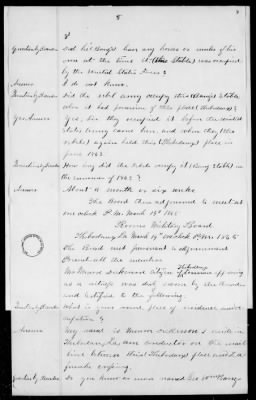 8
Question by Recorder Did Mr Bangs have any horses or mules of his
own at the time it (the Stable) was occupied
by the United States Forces?
Answer I do not know.
Question by Recorder Did the rebel army occupy this (Bangs) Stable
when it had possession of this place (Thibodaux)?
Answer Yes, Sir they occupied it before the United
States army came here, and when they (the
rebels) again held this (Thibodaux) place in
June 1863.
Question by Recorder How long did the rebels occupy it (Bangs Stable) in
the summer of 1863?
Answer About a month or six weeks
The Board then adjourned to meet at
one o'clock P.M. March 18th 1865
Rooms Military Board
Thibodaux, La March 18th one o'clock P.M. 1865
The Board met pursuant to adjournment
Present all the members
Mr Mason Dickerson Citizen of Thibodaux Louisiana appearing
as a witness was duly sworn by the Recorder
and testified to the following:
Question by Recorder What is your name place of residence and
occupation?
Answer My name is Mason Dickerson I reside in
Thibodaux, La, am conductor on the mail
line between this (Thibodaux) place and La
fourche crossing.
Question by Recorder Do you know a man named Geo Bangs